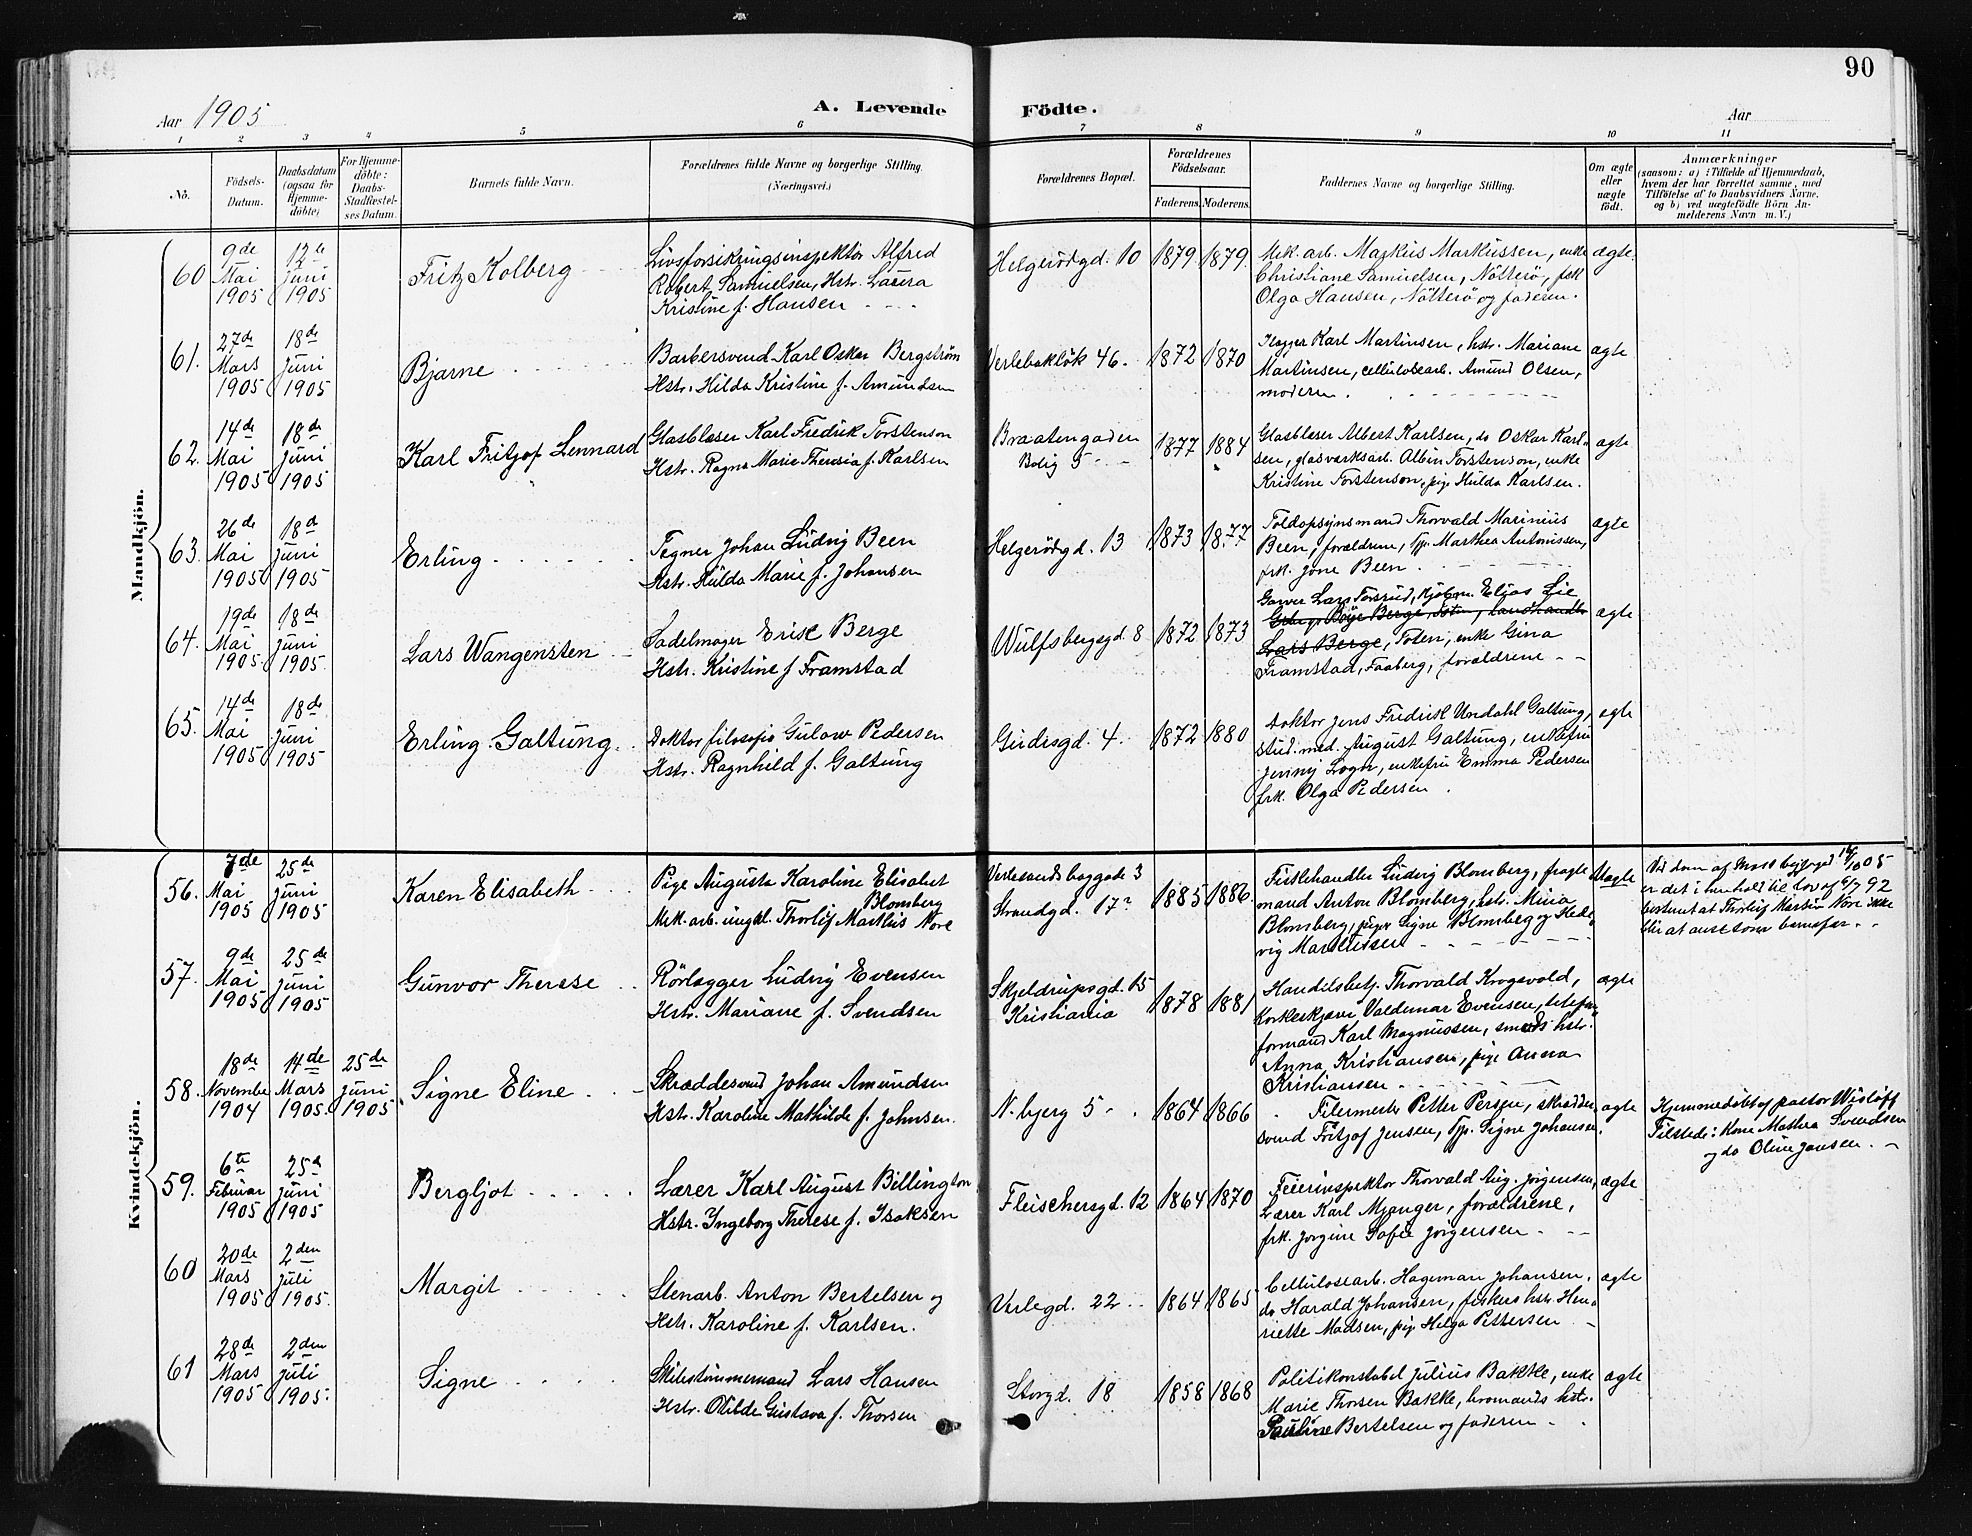 90
Aar 1905
A. Levende Födte.
Aar
1 2 3 4 5 6 7 8 9 10 11
No.
Födsels-
Datum.
Daabsdatum
(ogsaa for
Hjemme-
döbte)
For Hjemme-
döbte:
Daabs-
Stadfæstel-
ses Datum.
Barnets fulde Navn.
Forældrenes fulde Navne og borgerlige Stilling
(Næringsvei.)
Forældrenes Bopæl.
Forældrenes
Födselsaar.
Faderens. Moderens.
Faddernes Navne og borgerlige Stilling.
Om ægte
eller
uægte
födt.
Anmærkninger
(saasom: a) i Tilfælde af Hjemmedaab,
hvem der har forrettet samme, med
Tilföielse af to Daabsvidners Navne.
og b) ved uægtefödte Börn An-
melderens Navn m. V.)
Mandkjön.
60
9de
Mai
1905
12te
Juni
1905
Fritz Kolberg
Livsforsikringsinspektör Alfred
Robert Samuelsen, Hstr. Laura
Kristine f. Hansen
Helgerödgd. 10
1879 1879.
Mek. arb. Markus Markussen, enke
Christiane Samuelsen, Nötterö, frk
Olga Hansen, Nötterö og faderen.
ægte.
61.
27de
Mars
1905
18de
Juni
1905
Bjarne
Barbersvend Karl Oskar Bergström
Hstr. Hilda Kristine f. Amundsen
Verlebakløk 46.
1872 1870
Karl Martinsen, hstr. Mariane
Martinsen, cellulosearb. Amund Olsen,
moderen.
ægte
62.
14de
Mai
1905
18de
Juni
1905
Karl Fritjof Lennard
Glasblæser Karl Fredrik Torstenson
Hstr. Ragna Marie Theresia f. Karlsen
Braatengaden
Bolig 5
1877 1884
Glasblæser Albert Karlsen, do Oskar Karl-
sen, glasværksarb. Albin Torstenson, enke
Kristine Torstenson, pige Hulda Karlsen.
ægte
63.
26de
Mai
1905
18de
Juni
1905
Erling
Tegner Johan Ludvig Been
Hstr. Hulda Marie f. Johansen
Helgerödgd. 13
1873 1877
Toldopsynsmand Thorvald Marinius
Been, forældrene, Tjp. Marthea Antonissen,
frk. Jone Been.
ægte
64.
19de
Mai
1905.
18de
Juni
1905.
Lars Wangensten
Sadelmager Erik Berge
Hstr. Kristine f. Framstad
Wulfsbergsgd. 8
1872 1873
Garver Lars Torsrud, kjöbm. Elias Lie
Böye Berge, Toten, Landhandler
Lars Berge, Toten, enke Gina
Framstad, Faaberg, forældrene
ægte
65.
14de
Mai
1905
18de
Juni
1905
Erling Galtung
Doktor filosofis Gulow Pedersen
Hstr. Ragnhild f. Galtung
Gudesgd. 4.
1872 1880
Doktor Jens Fredrik Undahl Galtung,
stud. med. August Galtung, enkefru
Jenny Logn, enkefru Emma Pedersen
frk. Olga Pedersen.
ægte
Kvindekjön.
56.
7de
Mai
1905
25de
Juni
1905
Karen Elisabeth
Pige Augusta Karoline Elisabet
Blomberg
Mek. arb. ungkl. Thorleif Martlius Nore
Verlesandsbaggade 3
Strandgd. 17
1885 1886.
Fiskehandler Ludvig Blomberg, fragte
mand Anton Blomberg, hstr. Mina
Blomberg, piger Signe Blomberg og Hed-
vig Martlussen
Uægte
Ved dom af Moss byfoged 14/10 05
er det i henhold til lov af 6/7 92
bestemt at Thorleif Martlius Nore ikke
blir at anse som barnefar.
57.
9de
Mai
1905
25de
Juni
1905
Gunvor Therese
Rörlægger Ludvig Evensen
Hstr. Mariane f. Svendsen
Skjeldrupsgd. 15
Kristiania
1878 1881
Handelsbetj. Thorvald Krogsvold,
Korkeskjærer Valdemar Evensen, telefon
formand Karl Magnussen, smeds hstr.
Anna Kristiansen, pige Anna
Kristiansen
ægte
58.
18de
November
1904
14de
Mars
1905.
25de
Juni
1905
Signe Eline
Skræddesvend Johan Amundsen
Hstr. Karoline Mathilde f. Johnsen.
N. bjerg 5
1864 1866
Filermester Petter Persen, skrædder
svend Fritjof Jensen, Tjp. Signe Johansen
ægte
Hjemmedöbt af pastor Wisløff
Tilstede: Kone Mathea Svendsen
og do Oline Jansen.
59.
6te
Februar
1905
25de
Juni
1905
Bergljot
Lærer Karl August Billington
Hstr. Ingeborg Therese f. Isaksen
Fleischersgd. 12
1864 1870
Feierinspektor Thorvald Aug. Jörgensen,
Lærer Karl Mjanger, forældrene,
frk. Jörgine Sofie Jörgensen.
ægte
60
20de
Mars
1905
2den
Juli
1905.
Margit
Stenarb. Anton Bertelsen og
Hstr. Karoline f. Karlsen.
Verlegd. 22
1864 1865
Cellulosearb. Hageman Johansen,
do Harald Johansen, fiskers hstr. Hen-
riette Madsen, pige Helga Pettersen
ægte
61
28de
Mars
1905
2den
Juli
1905.
Signe
Skibstömmermand Lars Hansen
Hstr. Otilde Gustava f. Thorsen
Storgd. 18
1858 1868
Politikonstabel Julius Bakke, enke
Marie Thorsen Bakke, bromands hstr.
Pauline Bertelsen og faderen
ægte